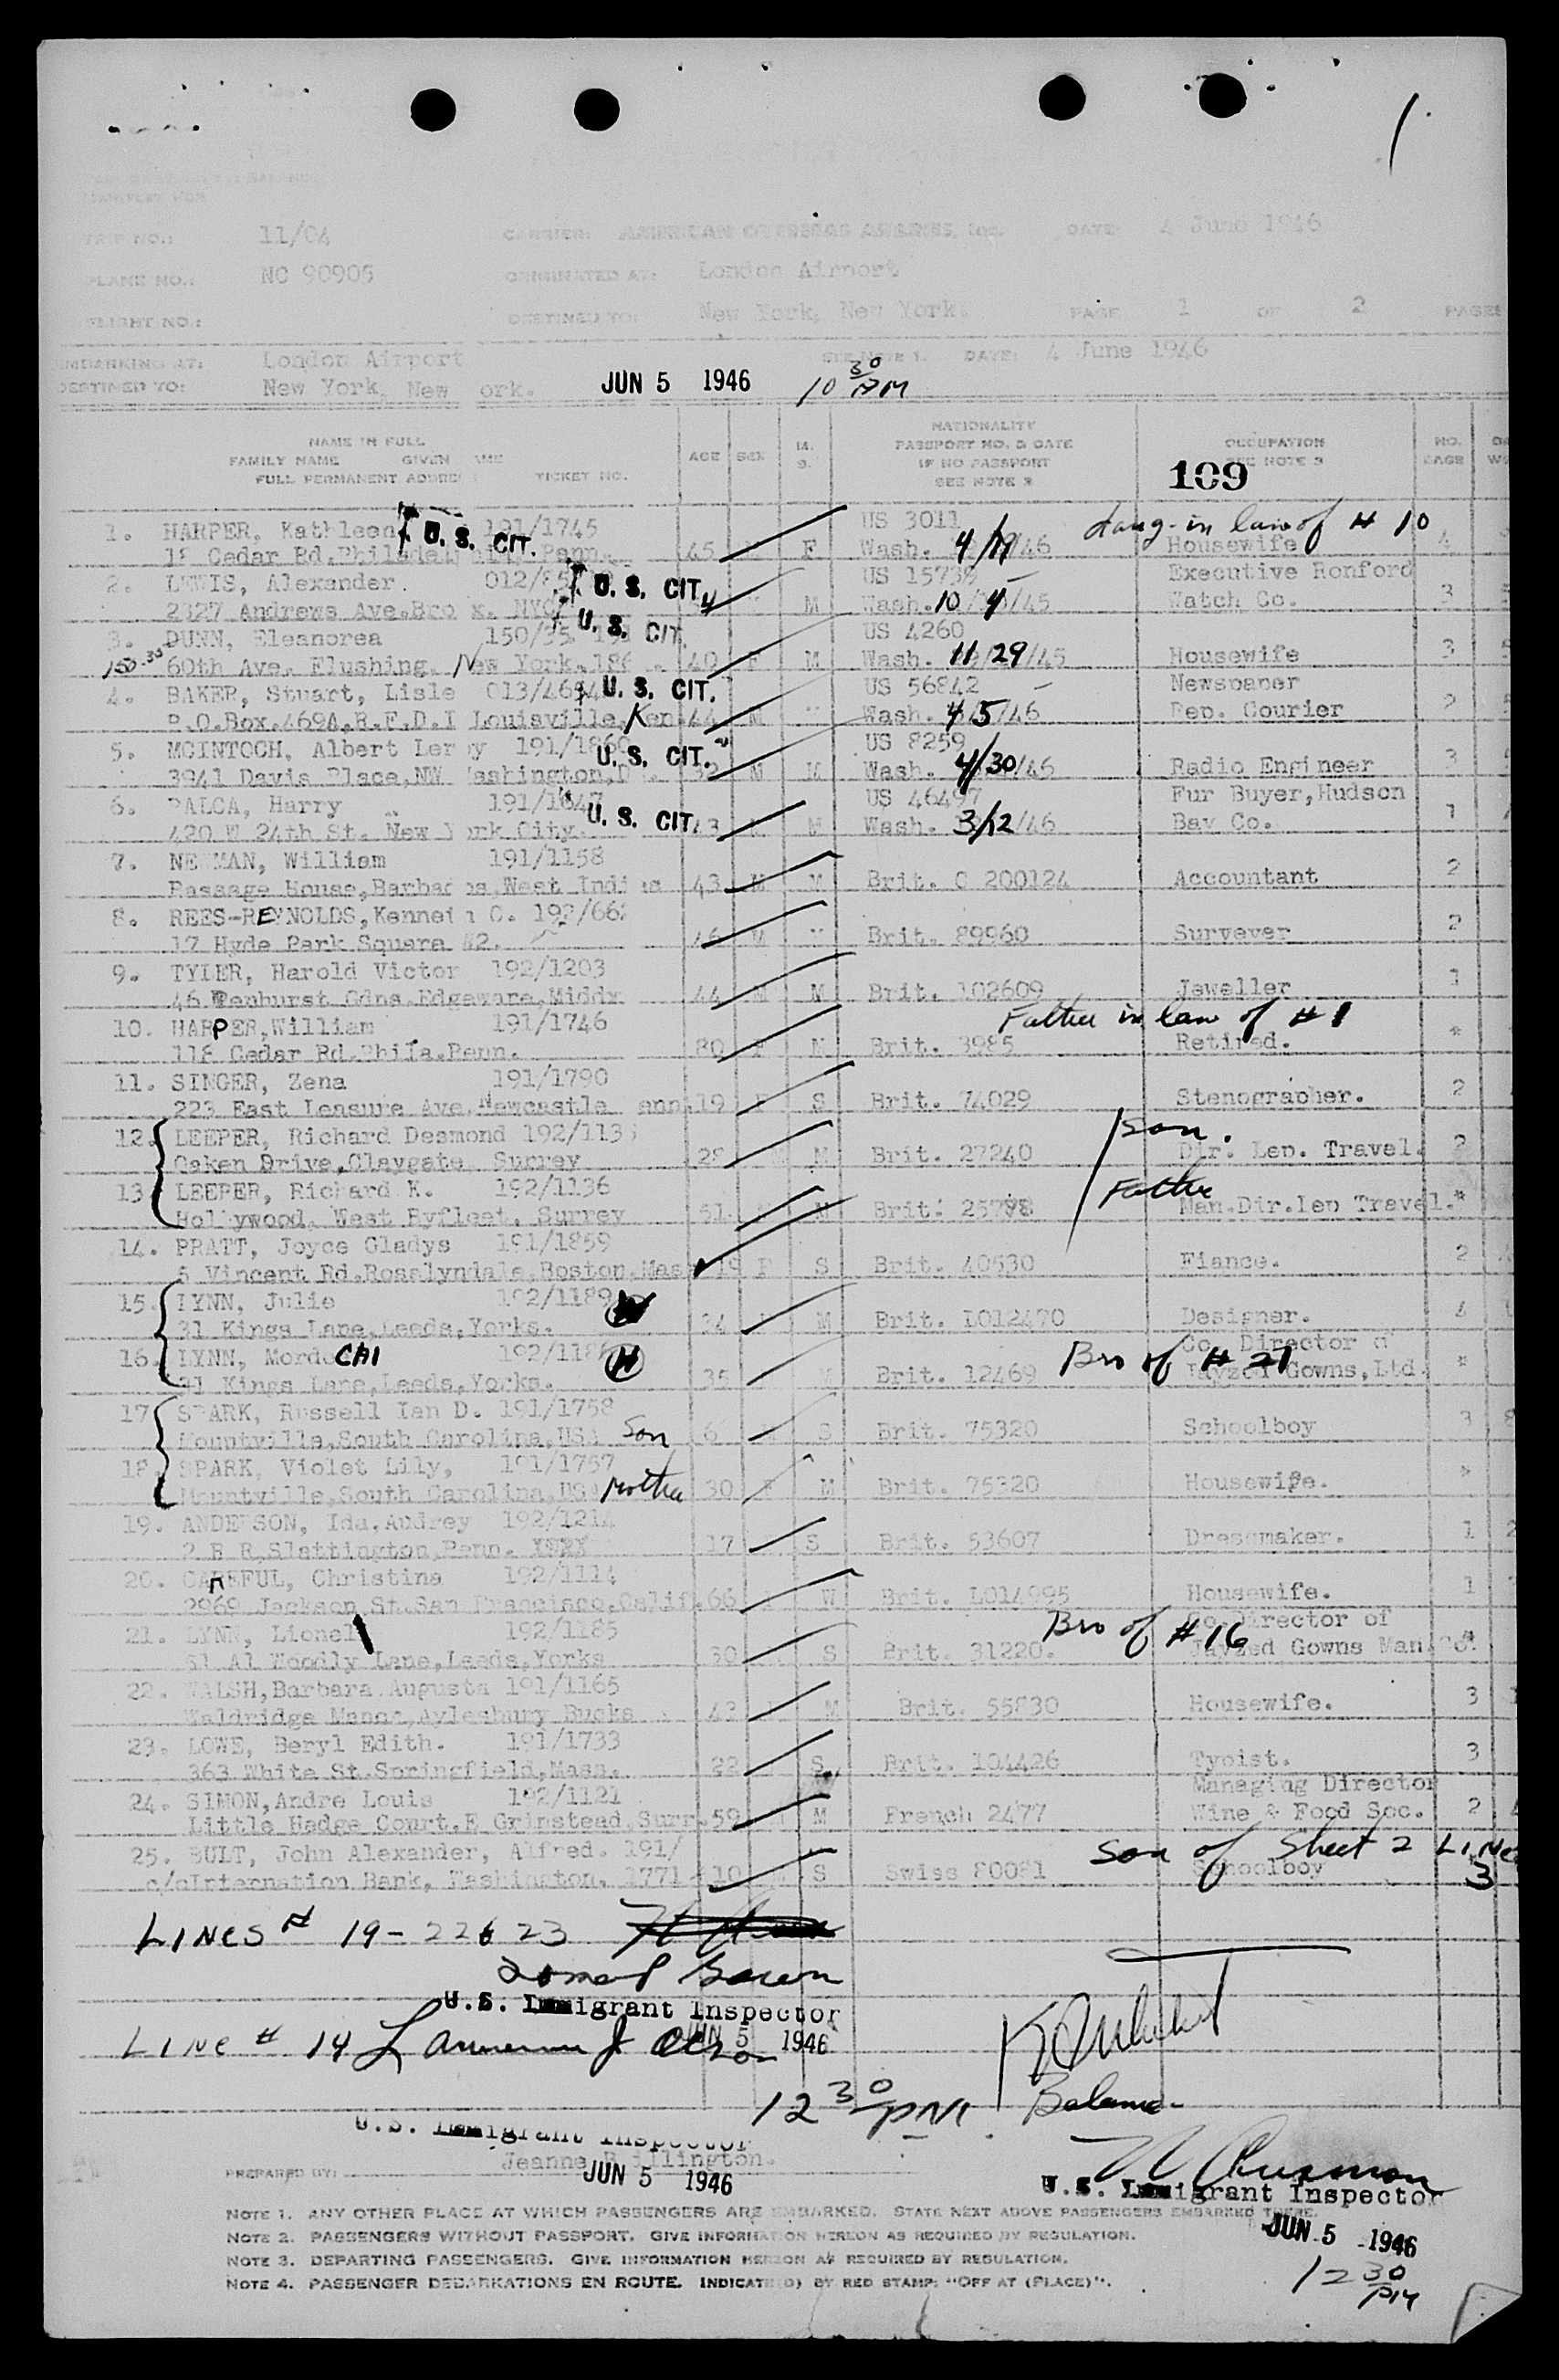 TRIP NO.: 11/04 CARRIER: AMERICAN OVERSEAS AIRLINES, Inc. DATE 4 June 1946
PLANE NO.: NC 90905 ORIGINATED AT: London Airport
FLIGHT NO.: DESTINED TO: New York, New York. PAGE 1 OF 2 PAGES
EMBARKING AT: London Airport SEE NOTE 1. DATE: 4 June 1946
DESTINED TO: New York, New ork. JUN 5 1946 10 30 AM
NAME IN FULL
FAMILY NAME GIVEN
FULL PERMANENT ADDRE TICKET NO.
AGE SEX M. S.
NATIONALITY
PASSPORT NO. & DATE
IF NO PASSPORT
SEE NOTE 2
OCCUPATION
SEE NOTE 3
109
NO. BAGE
1. HARPER, Kathleen U. S. CIT. 191/1745 US 3011 daug-in law of # 10
Cedar Rd. Penn. 45 F Wash. 4/ /46 Housewife 4
2. LEWIS, Alexander. 012/ U. S. CIT. US Executive Ronford
2327 Andrews Ave. NYC M Wash. 10/4/45 Watch Co. 3
3. DUNN, Eleanorea 150/35 U. S. CIT. US 4260
150-30 60th Ave. Flushing. New York. 40 F M Wash. 11/29/45 Housewife 3
4. BAKER, Stuart, Lisle 013/ U. S. CIT. US 56842 Newspaper
P.O.Box.469A.R.F.D.I Louisville, Ken. 44 M Wash. 4/5/46 Rep. Courier 2
5. MCINTOCH, Albert Ler y 191/1860 U. S. CIT. US 8259
3941 Davis Place, NW ashington, D . 32 M M Wash. 4/30/46 Radio Engineer 3
6. PALCA, Harry 191/1647 U. S. CIT. US 46497 Fur Buyer, Hudson
420 W 24th St. New York City. 43 M Wash. 3/12/46 Bay Co. 1
7. NE MAN, William 191/1158
Passage House, Barbad os, West Indies 43 M M Brit. C 200124 Accountant 2
8. REES-REYNOLDS, Kenneth C. 192/662
17 Hyde Park Square W2. 46 M Brit. 89960 Surveyer 2
9. TYLER, Harold Victor 192/1203
46 Penhurst Gdns. Edgeware, Middx 44 M M Brit. 102609 Jeweller 1
10. HARPER, William 191/1746 Father in law of # 1
118 Cedar Rd. Phila. Penn. 80 M Brit. 3985 Retired. *
11. SINGER, Zena 191/1790
223 East Leasure Ave. Newcastle enn. 19 F S Brit. 74029 Stenographer. 2
12. LEEPER, Richard Desmond 192/1135 Son.
Oaken Drive, Claygate, Surrey 28 M Brit. 27240 Dir. Lep. Travel. 2
13. LEEPER, Richard K. 192/1136 Father
Hollywood, West Byfleet, Surrey 51 M Brit. 25798 Man. Dir. lep Travel. *
14. PRATT, Joyce Gladys 191/1859
6 Vincent Rd. Roselyndale, Boston, Mass 19 F S Brit. 40530 Fiance. 2
15. LYNN, Julie 192/1189
31 Kings Lane, Leeds, Yorks. 34 M Brit. L012470 Designer. 4
16. LYNN, MordeCHI 192/118 H Bro of # 21 Co. Director of
31 Kings Lane, Leeds, Yorks. 35 M Brit. 12469 Jayzed Gowns, Ltd. *
17. SPARK, Russell Ian D. 191/1758
Mountville, South Carolina, USA Son 6 S Brit. 75320 Schoolboy 3
18. SPARK, Violet Lily, 191/1757
Mountville, South Carolina, USA Mother 30 F M Brit. 75320 Housewife. *
19. ANDERSON, Ida. Audrey 192/1214
2 B R, Slattington, Penn. 17 S Brit. 53607 Dressmaker. 1
20. CAREFUL, Christina 192/1114
2969 Jackson St. San Francisco, Calif. 66 W Brit. L014995 Housewife. 1
21. LYNN, Lionel 192/1185 Bro of # 16 Co. Director of
51 Al Woodly Lane, Leeds, Yorks 30 S Brit. 31220. Jayzed Gowns Man. *
22. WALSH, Barbara Augusta 191/1165
Waldridge Manor, Aylesbury Bucks 43 M Brit. 55830 Housewife. 3
23. LOWE, Beryl Edith. 191/1733
363 White St. Springfield, Mass. 22 S. Brit. 104426 Typist. 3
24. SIMON, Andre Louis 192/1121 Managing Director
Little Hedge Court. E Grinstead, Surr. 59 M French 2477 Wine & Food Soc. 2
25. BULT, John Alexander, Alfred. 191/ Son of Sheet 2 LINE 3
c/o Internation Bank, Washington. 1771 10 S Swiss 80081 Schoolboy
LINES # 19-22 & 23
U.S. Immigrant Inspector
JUN 5 1946
LINE # 14
12 30 PM Balance
U.S. Immigrant Inspector
PREPARED BY: Jeanne Billington.
JUN 5 1946
U.S. Immigrant Inspector
JUN 5 1946
12 30 PM
NOTE 1. ANY OTHER PLACE AT WHICH PASSENGERS ARE EMBARKED. STATE NEXT ABOVE PASSENGERS EMBARKED THERE.
NOTE 2. PASSENGERS WITHOUT PASSPORT. GIVE INFORMATION HEREON AS REQUIRED BY REGULATION.
NOTE 3. DEPARTING PASSENGERS. GIVE INFORMATION HEREON AS REQUIRED BY REGULATION.
NOTE 4. PASSENGER DEBARKATIONS EN ROUTE. INDICATE(D) BY RED STAMP: "OFF AT (PLACE)".